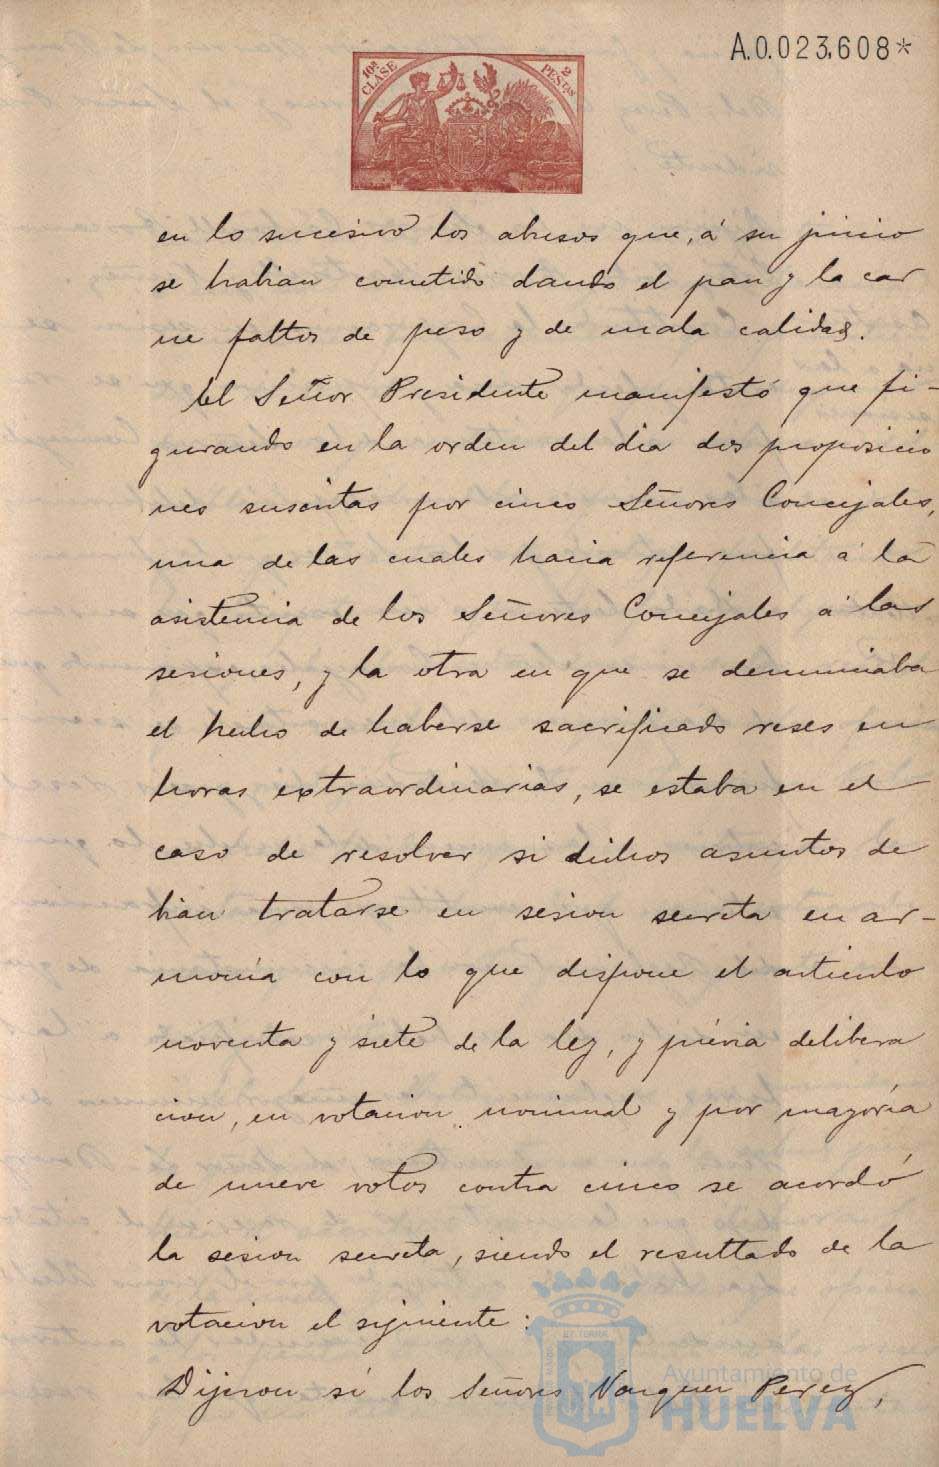 A.0.023,608*
10ª CLASE
2 PESETAS
en lo sucesivo los abusos que, á su juicio
se habian cometido dando el pan y la car
ne faltos de peso y de mala calidad.
El Señor Presidente manifestó que fi-
gurando en la orden del dia dos proposicio
nes suscritas por cinco Señores Concejales,
una de las cuales hacia referencia á la
asistencia de los Señores Concejales á las
sesiones, y la otra en que se denunciaba
el hecho de haberse sacrificado reses en
horas extraordinarias, se estaba en el
caso de resolver si dichos asuntos de
bian tratarse en sesion secreta en ar-
monia con lo que dispone el articulo
noventa y siete de la ley, y prévia delibera
cion, en votacion nominal y por mayoría
de nueve votos contra cinco se acordó
la sesion secreta, siendo el resultado de la
votacion el siguiente:
Dijeron sí los Señores Vazquez Perez,
Ayuntamiento de
HUELVA